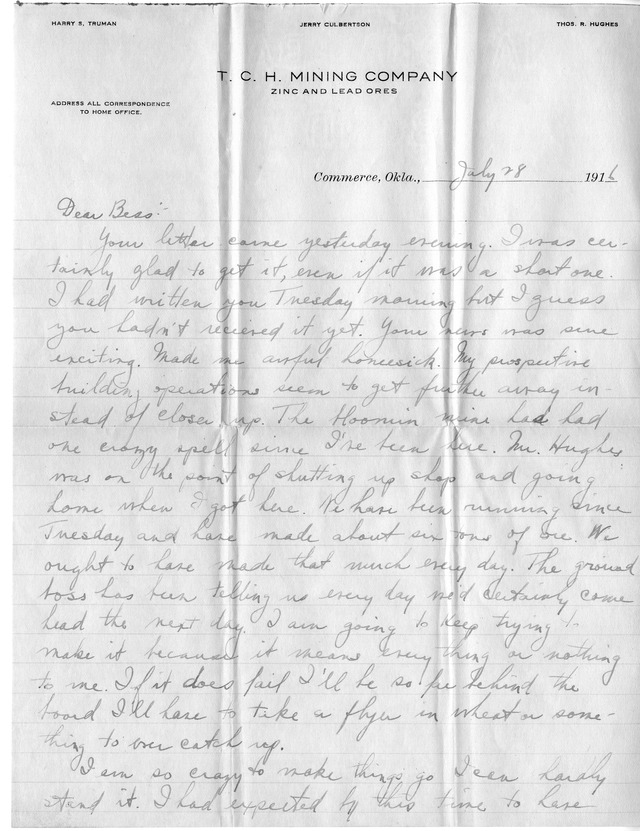 HARRY S. TRUMAN
JERRY CULBERTSON
THOS. R. HUGHES
T. C. H. MINING COMPANY
ZINC AND LEAD ORES
ADDRESS ALL CORRESPONDENCE
TO HOME OFFICE.
Commerce, Okla., July 28 1916
Dear Bess:-
Your letter came yesterday evening. I was cer-
tainly glad to get it, even if it was a short one.
I had written you Tuesday morning but I guess
you hadn't recieved it yet. Your news was sure
exciting. Made me awful homesick. My prospective
building operations seem to get further away in-
stead of closer up. The bloomin mine has had
one crazy spell since I've been here. Mr. Hughes
was on the point of shutting up shop and going
home when I got here. We have been running since
Tuesday and have made about six tons of ore. We
ought to have made that much every day. The ground
boss has been telling us every day we'd certainly come
head the next day. I am going to keep trying to
make it because it means everything or nothing
to me. If it does fail I'll be so far behind the
board I'll have to take a flyer in wheat or some-
thing to ever catch up.
I am so crazy to make things go I can hardly
stand it. I had expected by this time to have